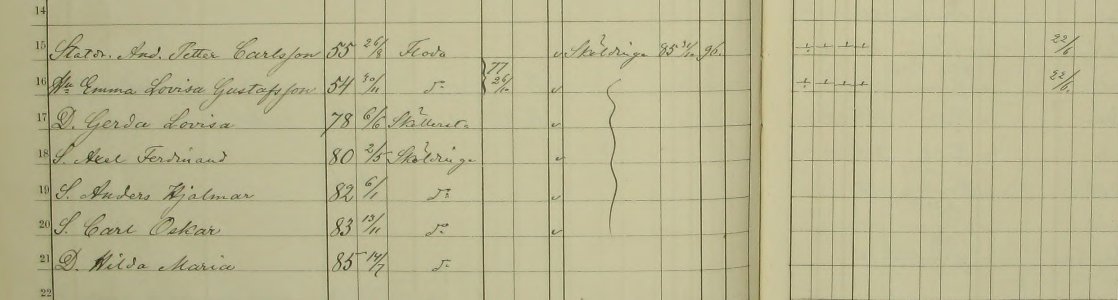 14
15 Statdr. And. Petter Carlsson 55 26/8 Floda v Sköldinge 85 31/10 96. 22/6
16 Hu Emma Lovisa Gustafsson 54 30/11 do 77 26/10 v 22/6.
17 D. Gerda Lovisa 78 6/6 v
18 S. Axel Ferdinand 80 2/5 Sköldinge v
19 S. Anders Hjalmar 82 6/1 do v
20 S. Carl Oskar 83 13/11 do v
21 D. Hilda Maria 85 14/7 do
22